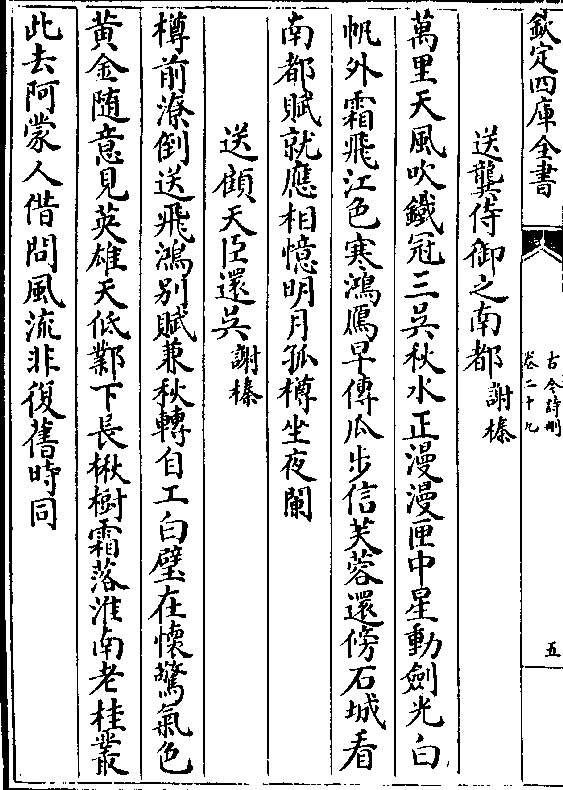 欽定四庫全書
古今詩刪
卷二十九
五
送龔侍御之南都 謝榛
萬里天風吹鐵冠三吳秋水正漫漫匣中星動劍光白
帆外霜飛江色寒鴻鴈早傳瓜步信芙蓉還傍石城看
南都賦就應相憶明月孤樽坐夜闌
送顧天臣還吳 謝榛
樽前潦倒送飛鴻别賦兼秋轉自工白璧在懷驚氣色
黃金隨意見英雄天低鄴下長楸樹霜落淮南老桂叢
此去阿蒙人借問風流非復舊時同